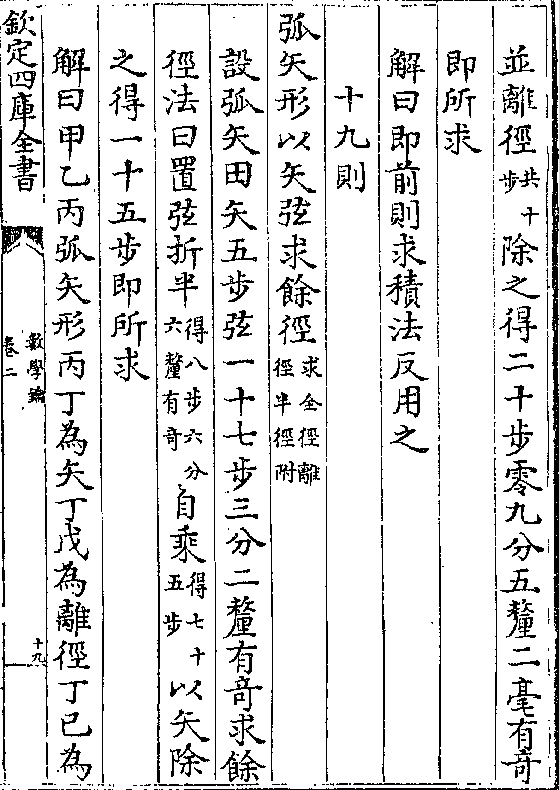 並離徑共十步除之得二十步零九分五釐二毫有奇
即所求
解曰即前則求積法反用之
十九則
弧矢形以矢弦求餘徑求全徑離徑半徑附
設弧矢田矢五步弦一十七步三分二釐有奇求餘
徑法曰置弦折半得八步六分六釐有奇自乘得七十五步以矢除
之得一十五步即所求
解曰甲乙丙弧矢形丙丁為矢丁戊為離徑丁已為
欽定四庫全書
數學鑰
卷二
十九